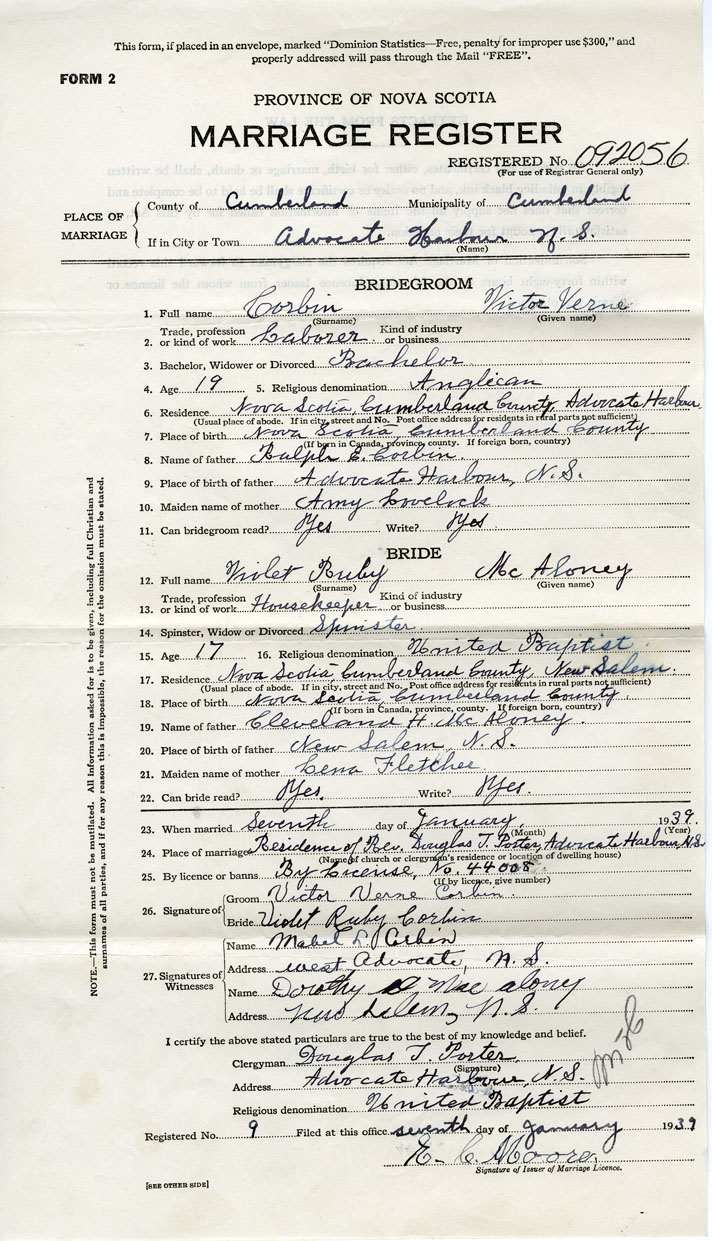 This form, if placed in an envelope, marked "Dominion Statistics—Free, penalty for improper use $300," and
properly addressed will pass through the Mail "FREE".
FORM 2
PROVINCE OF NOVA SCOTIA
MARRIAGE REGISTER
REGISTERED No. 092056
(For use of Registrar General only)
PLACE OF MARRIAGE
County of Cumberland Municipality of Cumberland
If in City or Town Advocate Harbour N. S.
(Name)
BRIDEGROOM
1. Full name Corbin Victor Verne
(Surname) (Given name)
2. Trade, profession or kind of work Laborer Kind of industry or business
3. Bachelor, Widower or Divorced Bachelor
4. Age 19 5. Religious denomination Anglican
6. Residence Nova Scotia, Cumberland County, Advocate Harbour
(Usual place of abode. If in city, street and No. Post office address for residents in rural parts not sufficient)
7. Place of birth Nova Scotia, Cumberland County
(If born in Canada, province, county. If foreign, country)
8. Name of father Ralph E. Corbin.
9. Place of birth of father Advocate Harbour, N.S.
10. Maiden name of mother Amy Lovelock
11. Can bridegroom read? Yes Write? Yes
BRIDE
12. Full name Violet Ruby Mc Aloney
(Surname) (Given name)
13. Trade, profession or kind of work Housekeeper Kind of industry or business
14. Spinster, Widow or Divorced Spinster
15. Age 17 16. Religious denomination United Baptist.
17. Residence Nova Scotia, Cumberland County, New Salem.
(Usual place of abode. If in city, street and No. Post office address for residents in rural parts not sufficient)
18. Place of birth Nova Scotia, Cumberland County
(If born in Canada, province, county. If foreign, country)
19. Name of father Cleveland H. Mc Aloney.
20. Place of birth of father New Salem, N. S.
21. Maiden name of mother Lena Fletcher
22. Can bride read? Yes. Write? Yes.
23. When married Seventh day of January, 1939.
(Month) (Year)
24. Place of marriage Residence of Rev. Douglas T. Porter, Advocate Harbour, N.S.
(Name of church or clergyman's residence or location of dwelling house)
25. By licence or banns By License, No. 44008
(If by licence, give number)
26. Signature of
Groom Victor Verne Corbin.
Bride Violet Ruby Corbin
27. Signatures of Witnesses
Name Mabel L. Corbin
Address west Advocate, N. S.
Name Dorothy Mac aloney
Address New Salem, N. S.
I certify the above stated particulars are true to the best of my knowledge and belief.
Clergyman Douglas T. Porter,
(Signature)
Address Advocate Harbour, N.S.
Religious denomination United Baptist
Registered No. 9 Filed at this office seventh day of January 1939
E. C. Moore
Signature of Issuer of Marriage Licence.
[SEE OTHER SIDE]
NOTE.—This form must not be mutilated. All information asked for is to be given, including full Christian and
surnames of all parties, and if for any reason this is impossible, the reason for the omission must be stated.